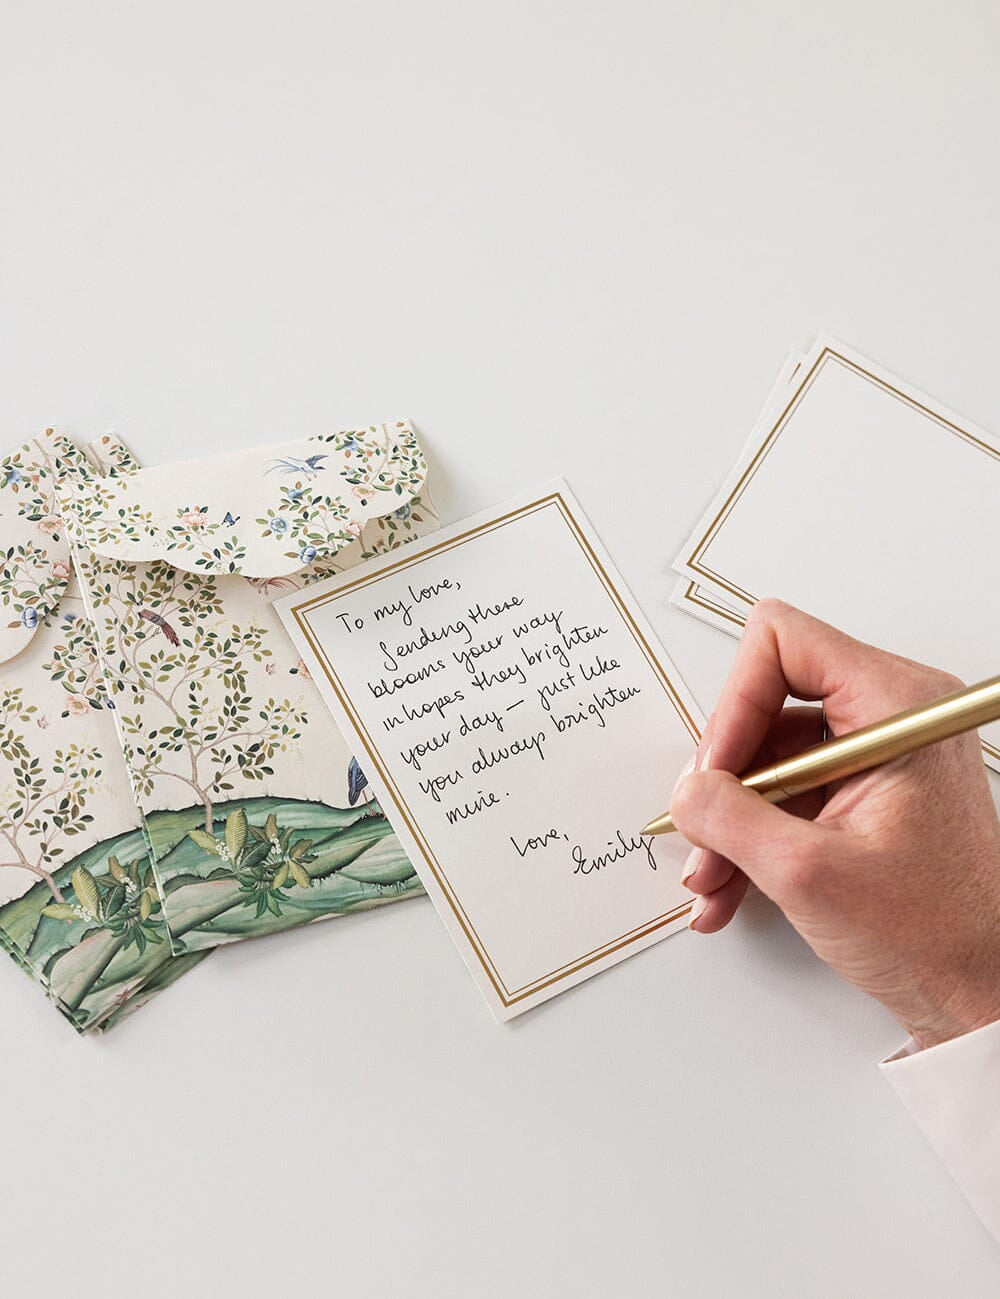 To my love,
Sending these
blooms your way
in hopes they brighten
your day — just like
you always brighten
mine.
Love,
Emily